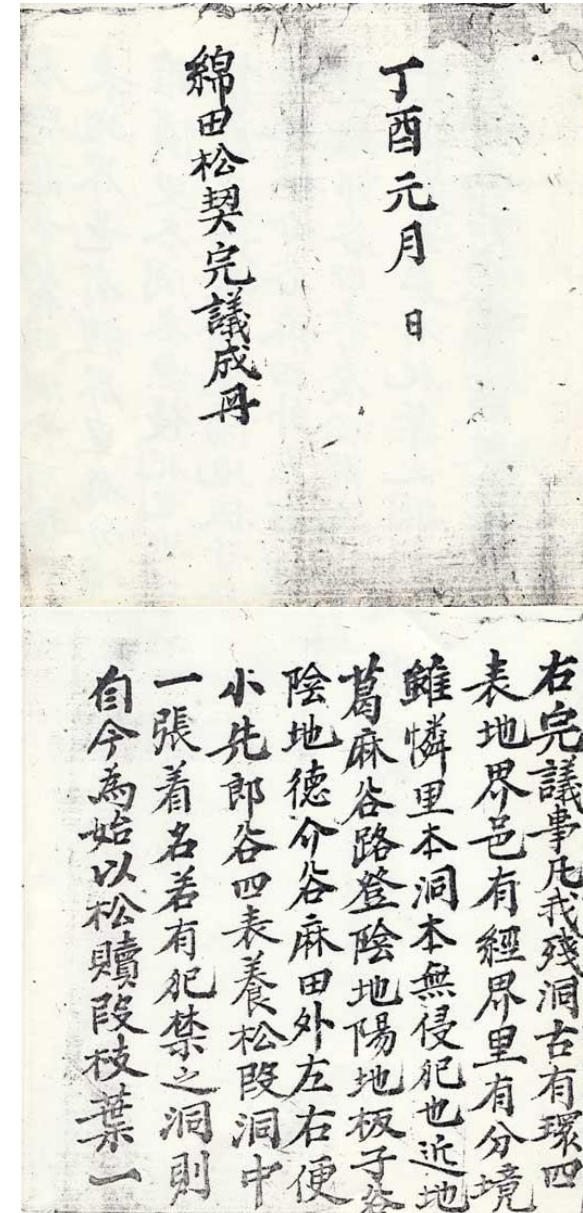 丁酉元月 日
綿田松契完議成丹
右完議事凡我殘洞古有環四
表地界邑有經界里有分境
雖憐里本洞本無侵犯也近地
葛麻谷路登陰地陽地板子谷
陰地德介谷麻田外左右便
小先郎谷四表養松段洞中
一張着名若有犯禁之洞則
自今為始以松贖段枝葉一